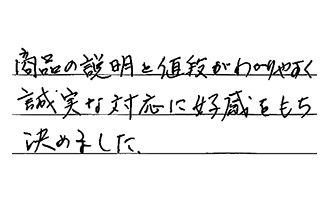 商品の説明と値段がわかりやすく
誠実な対応に好感をもち
決めました。